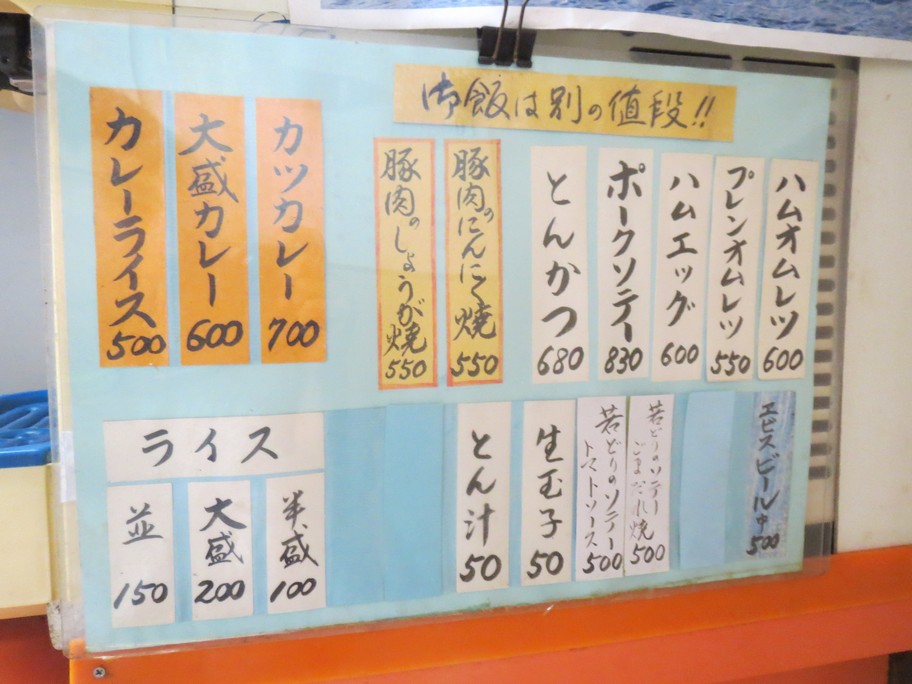 御飯は別の値段!!
ハムオムレツ 600
プレンオムレツ 550
ハムエッグ 600
ポークソテー 830
とんかつ 680
豚肉のにんにく焼 550
豚肉のしょうが焼 550
カツカレー 700
大盛カレー 600
カレーライス 500
エビスビール中 500
若どりのソテー
ごまだれ焼 500
若どりのソテー
トマトソース 500
生玉子 50
とん汁 50
ライス
半盛 100
大盛 200
並 150